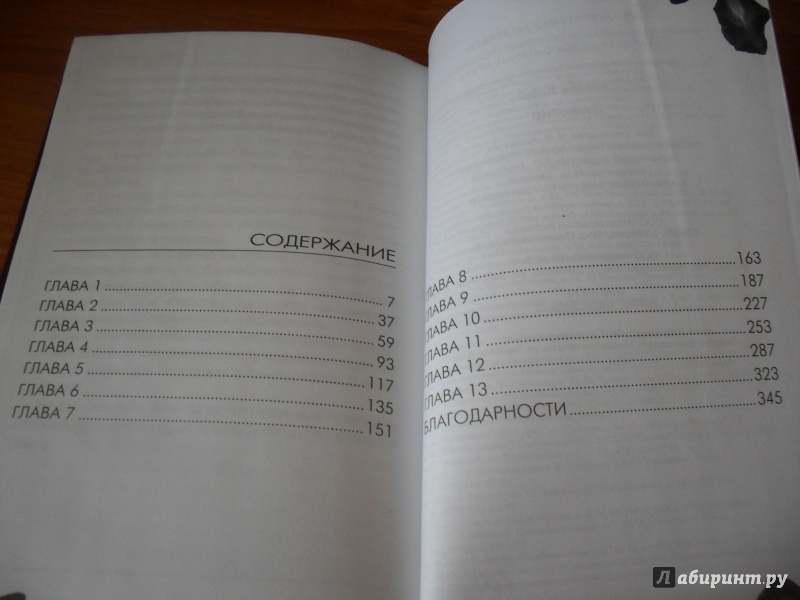 СОДЕРЖАНИЕ
ГЛАВА 1 ........ 7
ГЛАВА 2 ........ 37
ГЛАВА 3 ........ 59
ГЛАВА 4 ........ 93
ГЛАВА 5 ........ 117
ГЛАВА 6 ........ 135
ГЛАВА 7 ........ 151
ГЛАВА 8 ........ 163
ГЛАВА 9 ........ 187
ГЛАВА 10 ........ 227
ГЛАВА 11 ........ 253
ГЛАВА 12 ........ 287
ГЛАВА 13 ........ 323
БЛАГОДАРНОСТИ ........ 345
Лабиринт.ру